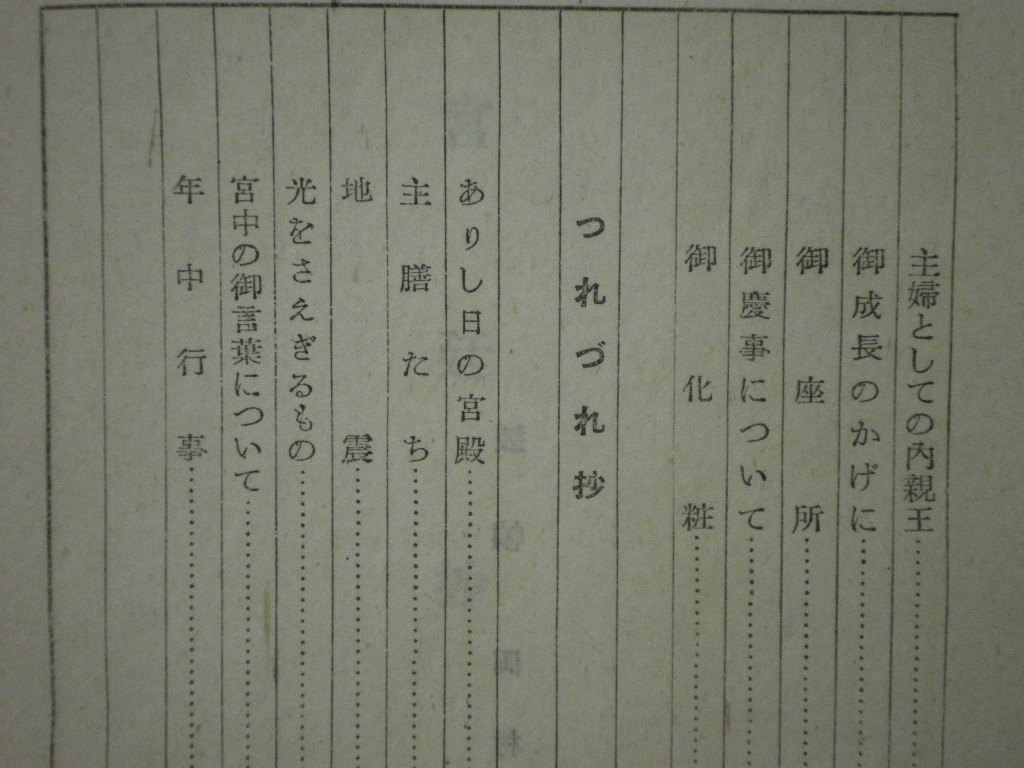 主婦としての內親王……………
御成長のかげに……………
御座所……………
御慶事について……………
御化粧……………
つれづれ抄
ありし日の宮殿……………
主膳たち……………
地震
光をさえぎるもの……………
宮中の御言葉について……………
年中行事……………